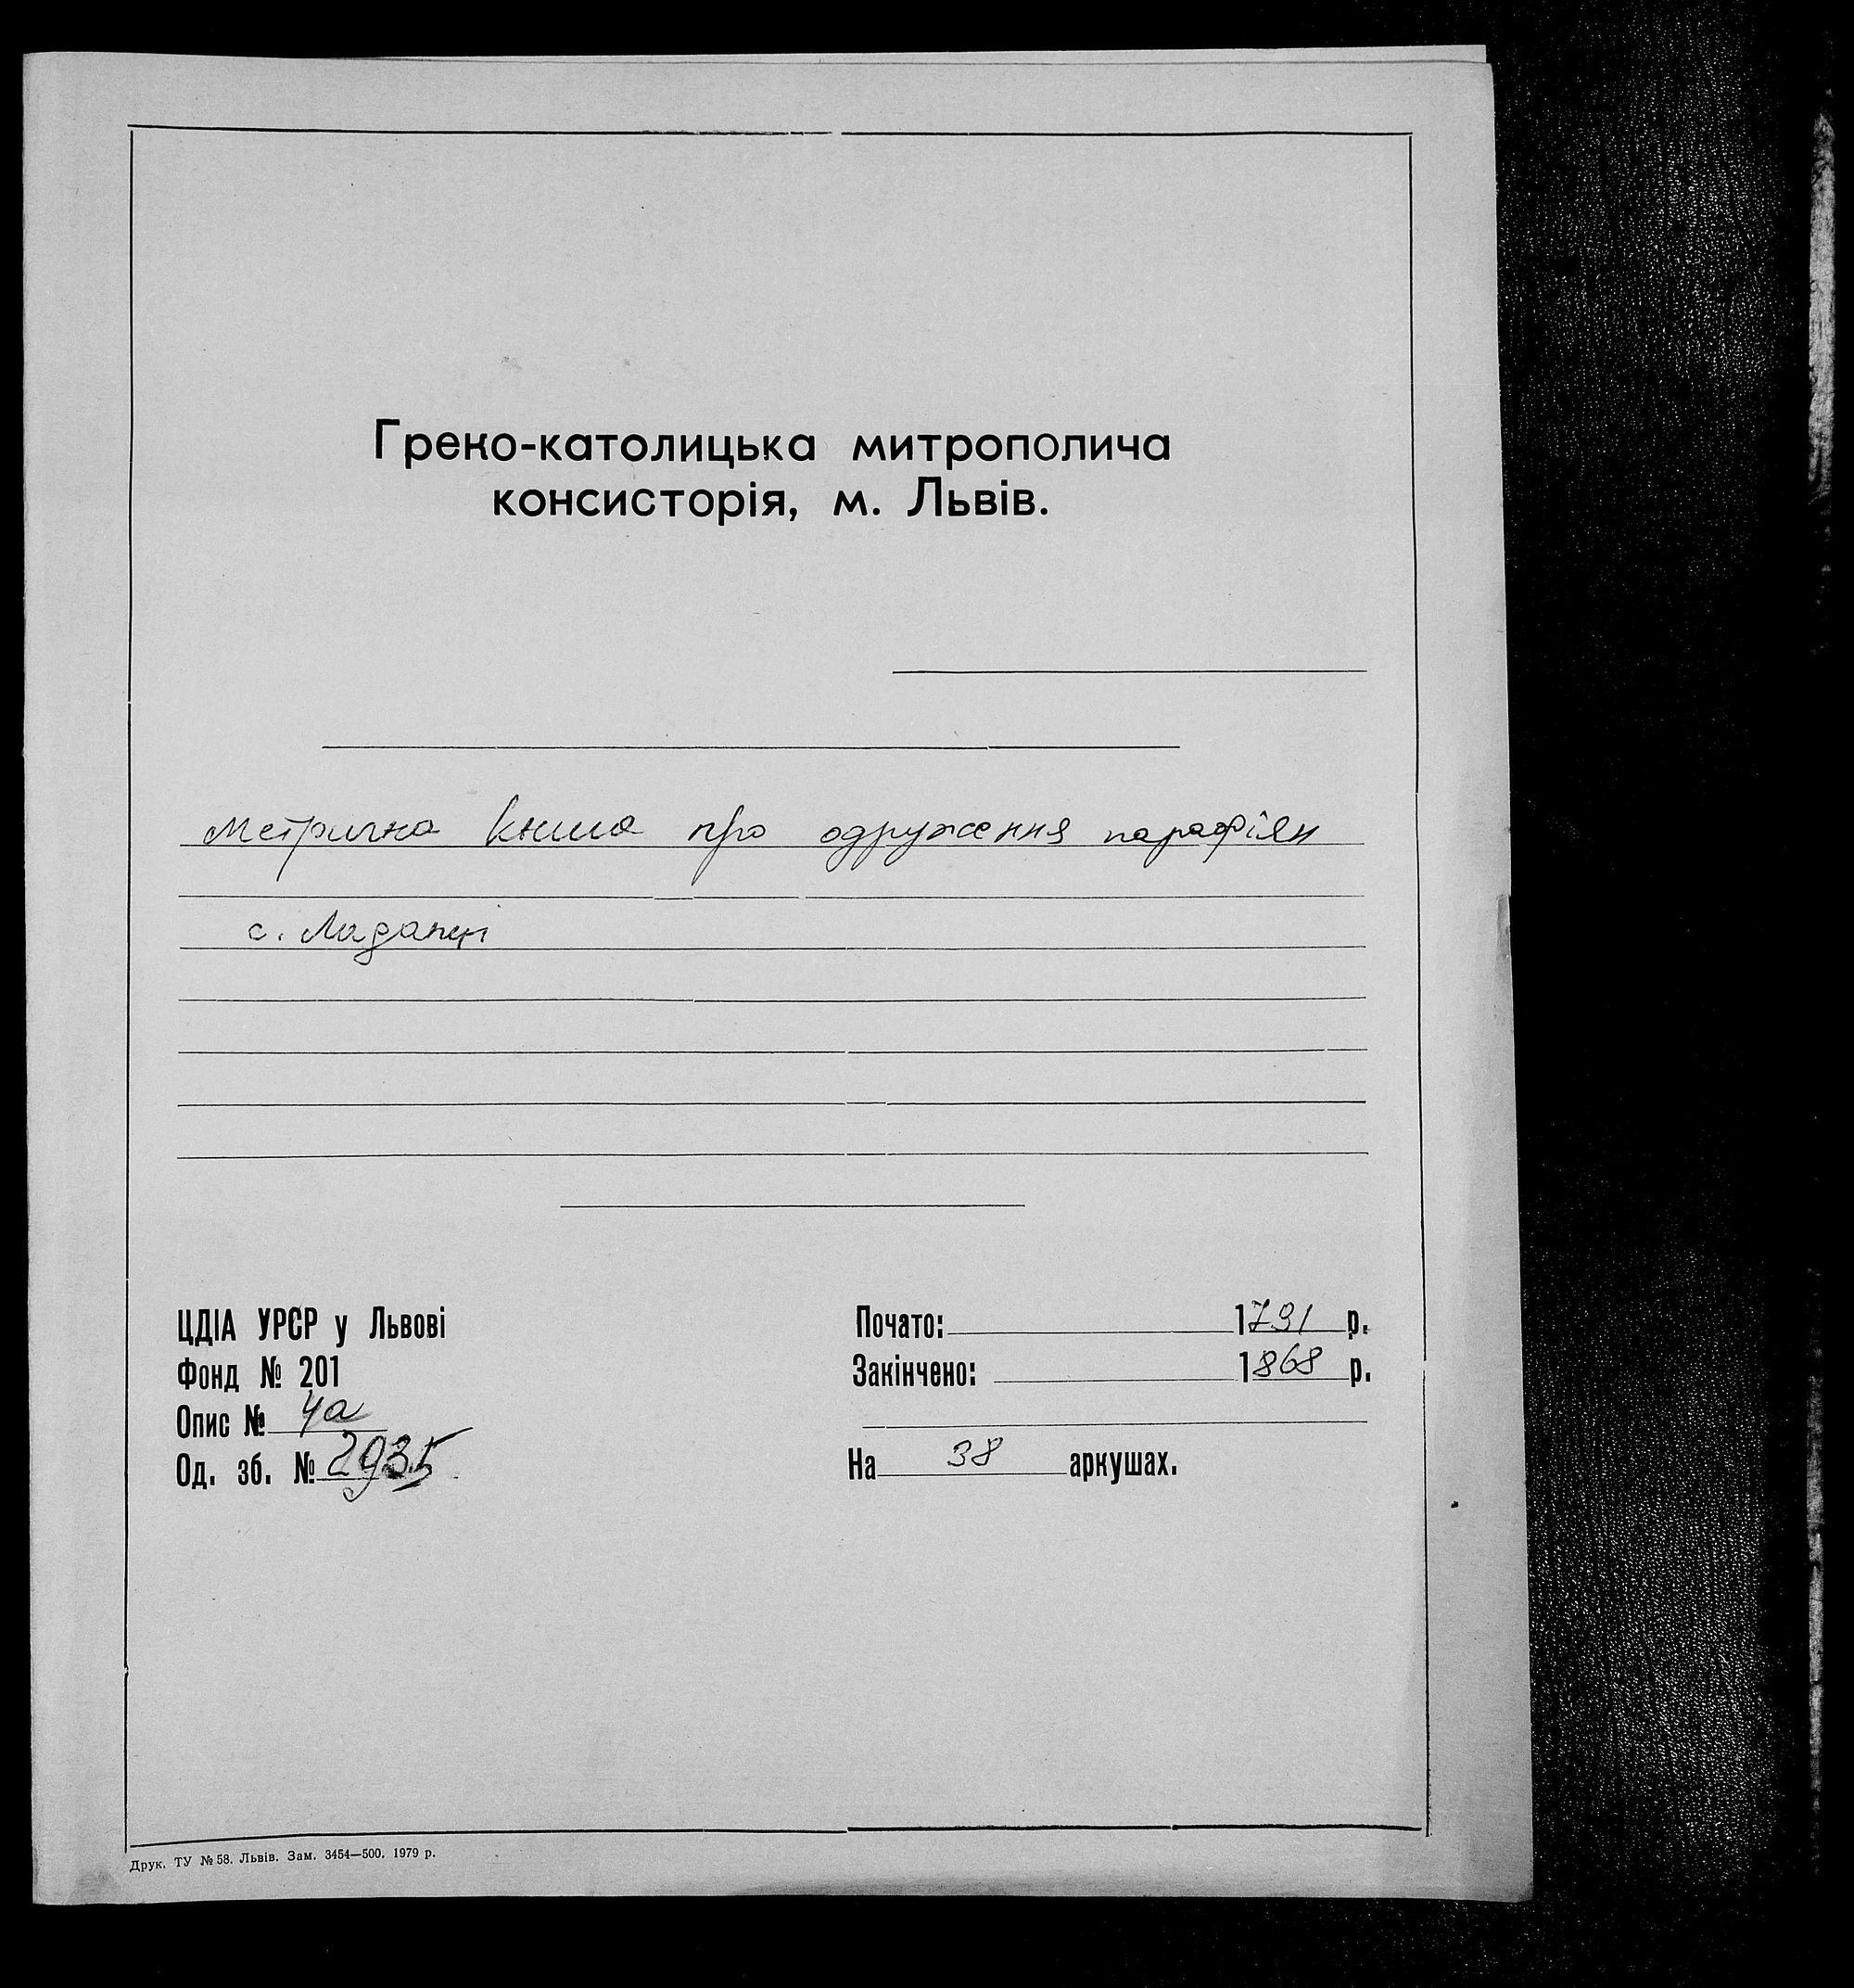 Греко-католицька митрополича
консисторія, м. Львів.
Метрична книга про одруження парафіян
с. Ладанці
ЦДІА УРСР у Львові
Фонд № 201
Опис № 4а
Од. зб. № 2935
Почато: 1791 р.
Закінчено: 1868 р.
На 38 аркушах.
Друк. ТУ № 58. Львів. Зам. 3454—500. 1979 р.